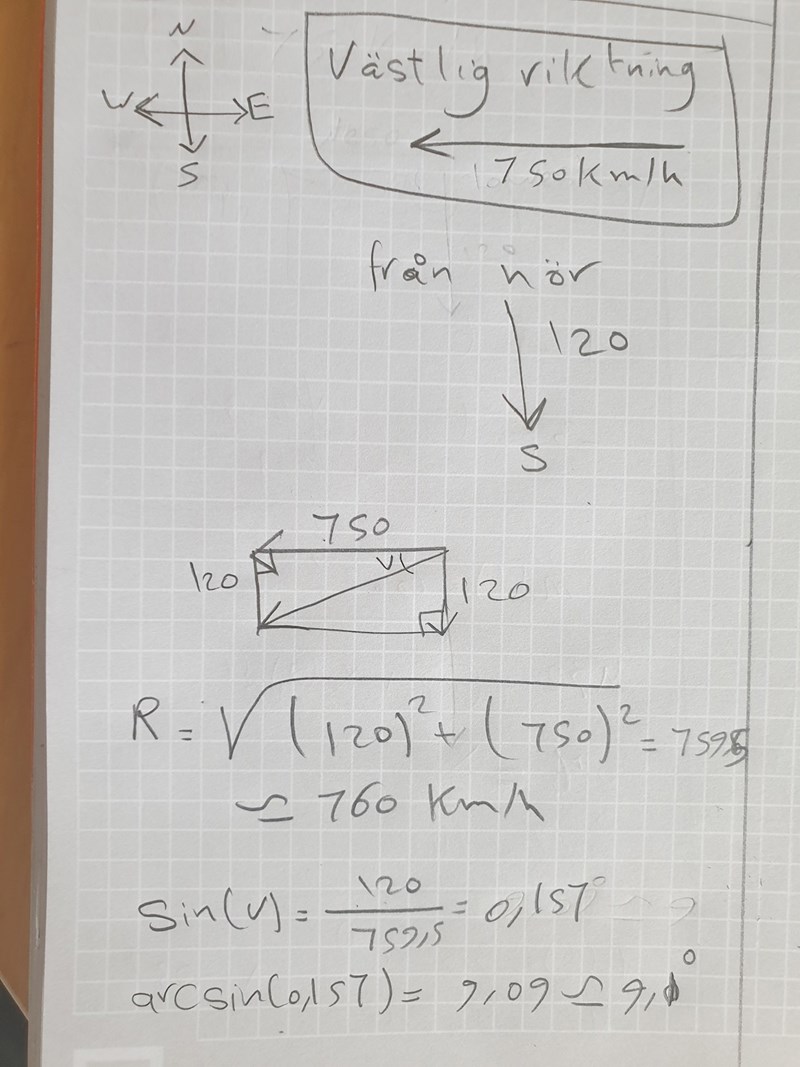 N
W E
S
Västlig riktning
750 km/h
från nör
120
S
750
120 v 120
R = √(120)² + (750)² = 759,5
≃ 760 km/h
sin(v) = 120/759,5 = 0,157°
arcsin(0,157) = 9,09 ≃ 9,1°